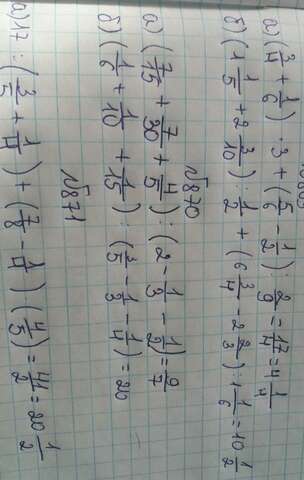 а) (3/4 + 1/6) · 3 + (5/6 - 1/2) : 2/9 = 17/4 = 4 1/4
б) (1 1/5 + 2 3/10) : 1/2 + (6 3/4 - 2 2/3) : 1 1/6 = 10 1/2
№870
а) (7/15 + 7/30 + 4/5) : (2 - 1/3 - 1/2) = 9/7
б) (1/6 + 1/10 + 1/15) : (3/5 - 1/3 - 1/4) = 20
№871
а) 17 : (3/5 + 1/4) + (7/8 - 1/4) (4/5) = 41/2 = 20 1/2